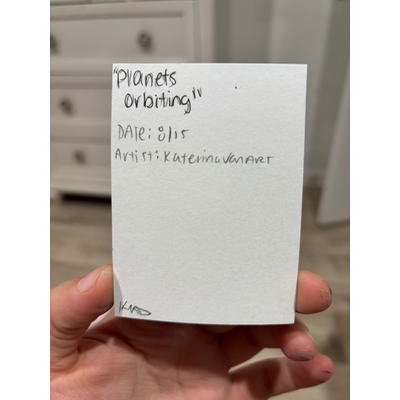 "Planets
orbiting"
DATE: 8/15
Artist: KaterinavanART